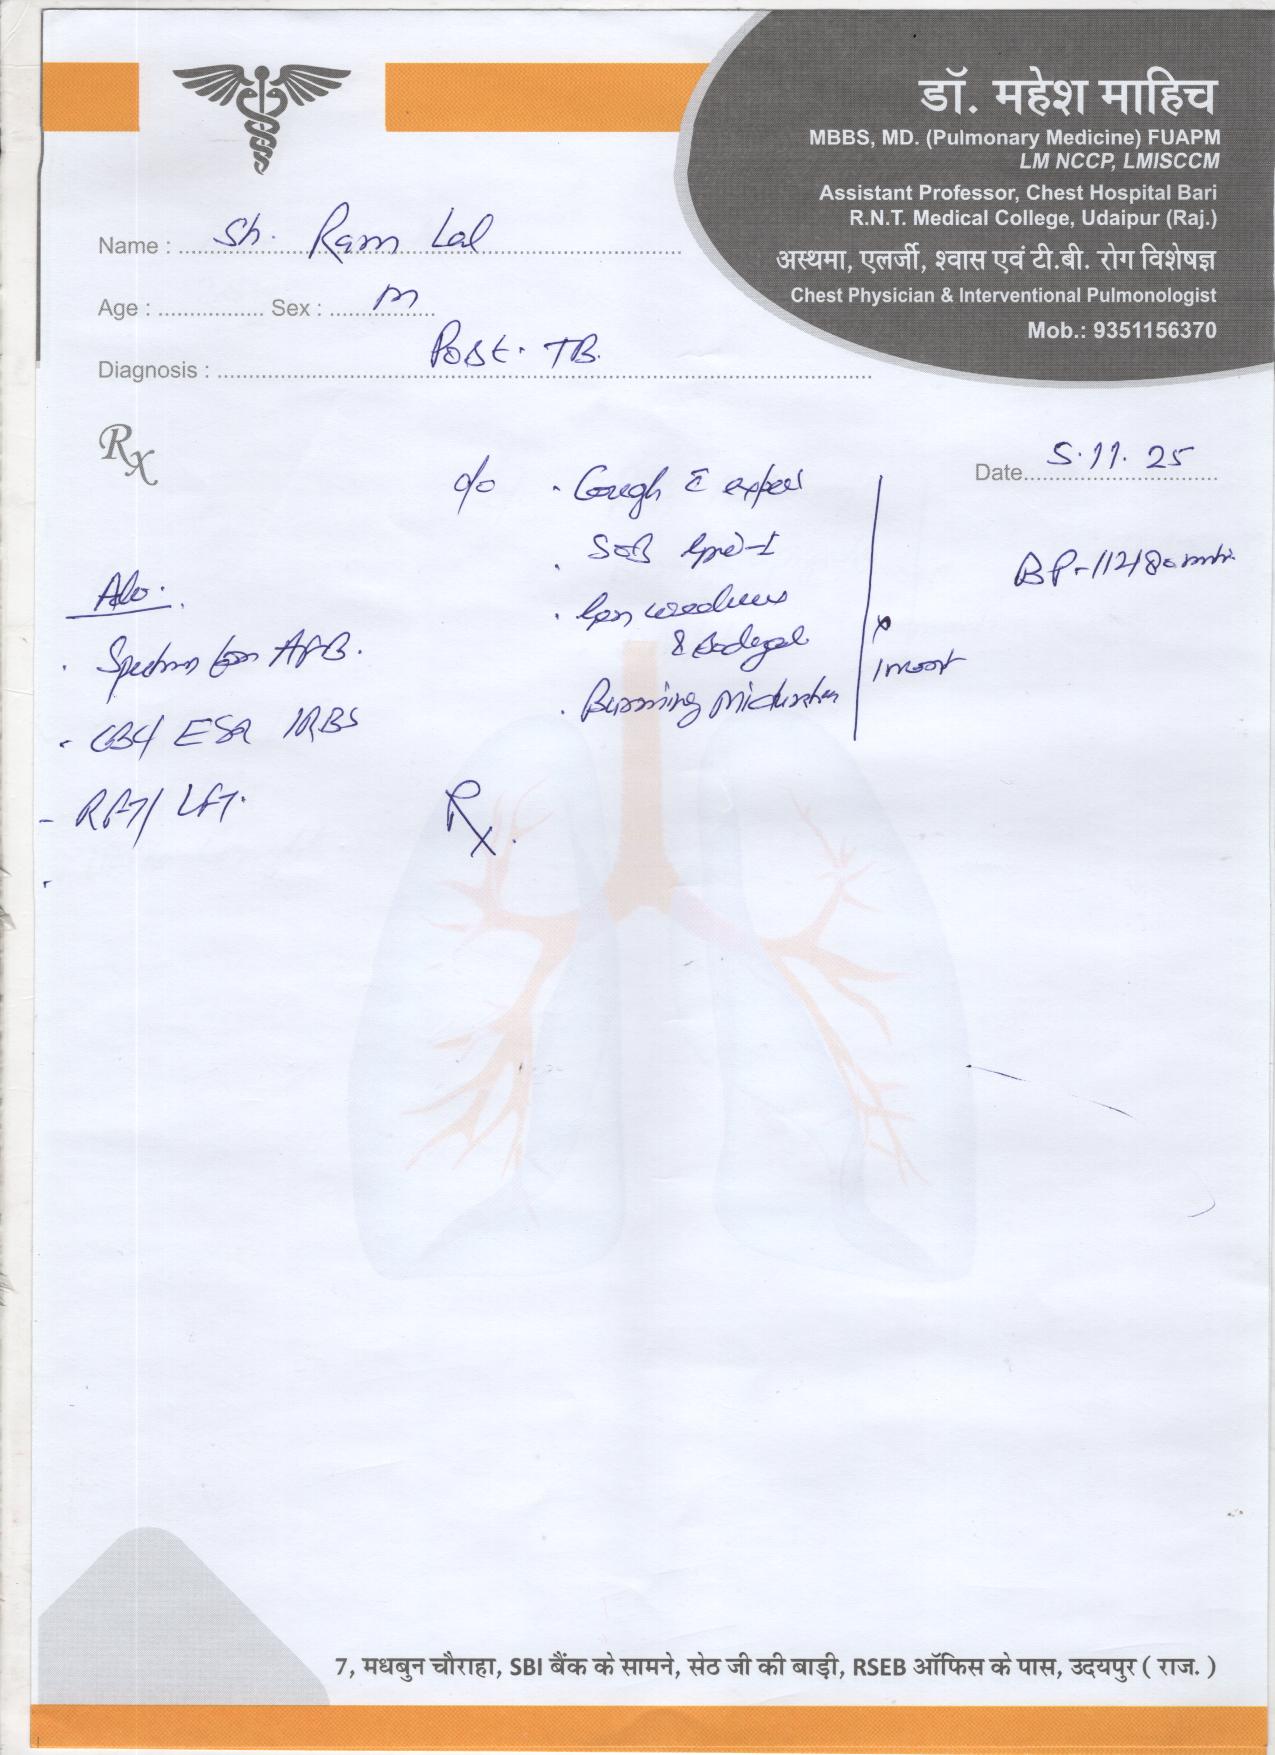 डॉ. महेश माहिच
MBBS, MD. (Pulmonary Medicine) FUAPM
LM NCCP, LMISCCM
Assistant Professor, Chest Hospital Bari
R.N.T. Medical College, Udaipur (Raj.)
अस्थमा, एलर्जी, श्वास एवं टी.बी. रोग विशेषज्ञ
Chest Physician & Interventional Pulmonologist
Mob.: 9351156370
Name : Sh. Ram Lal
Age : Sex : M
Diagnosis : Post. TB.
Rx
Date 5.11.25
c/o . Cough c̄ expect
. SOB
BP - 112/80
. Gen weakness
&
1 month
. Burning Micturition
Adv.
. for AFB.
- CBC/ ESR /RBS
- RFT/ LFT.
Rx.
7, मधुबन चौराहा, SBI बैंक के सामने, सेठ जी की बाड़ी, RSEB ऑफिस के पास, उदयपुर ( राज. )